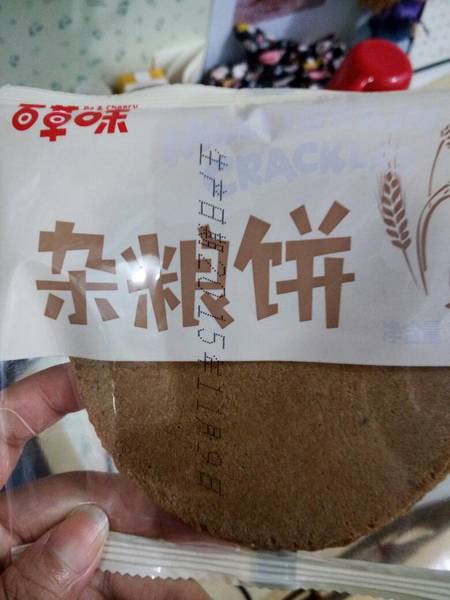 百草味
Be & Cheery
CRACKER
杂粮饼
生产日期2015年11月9日
净含量